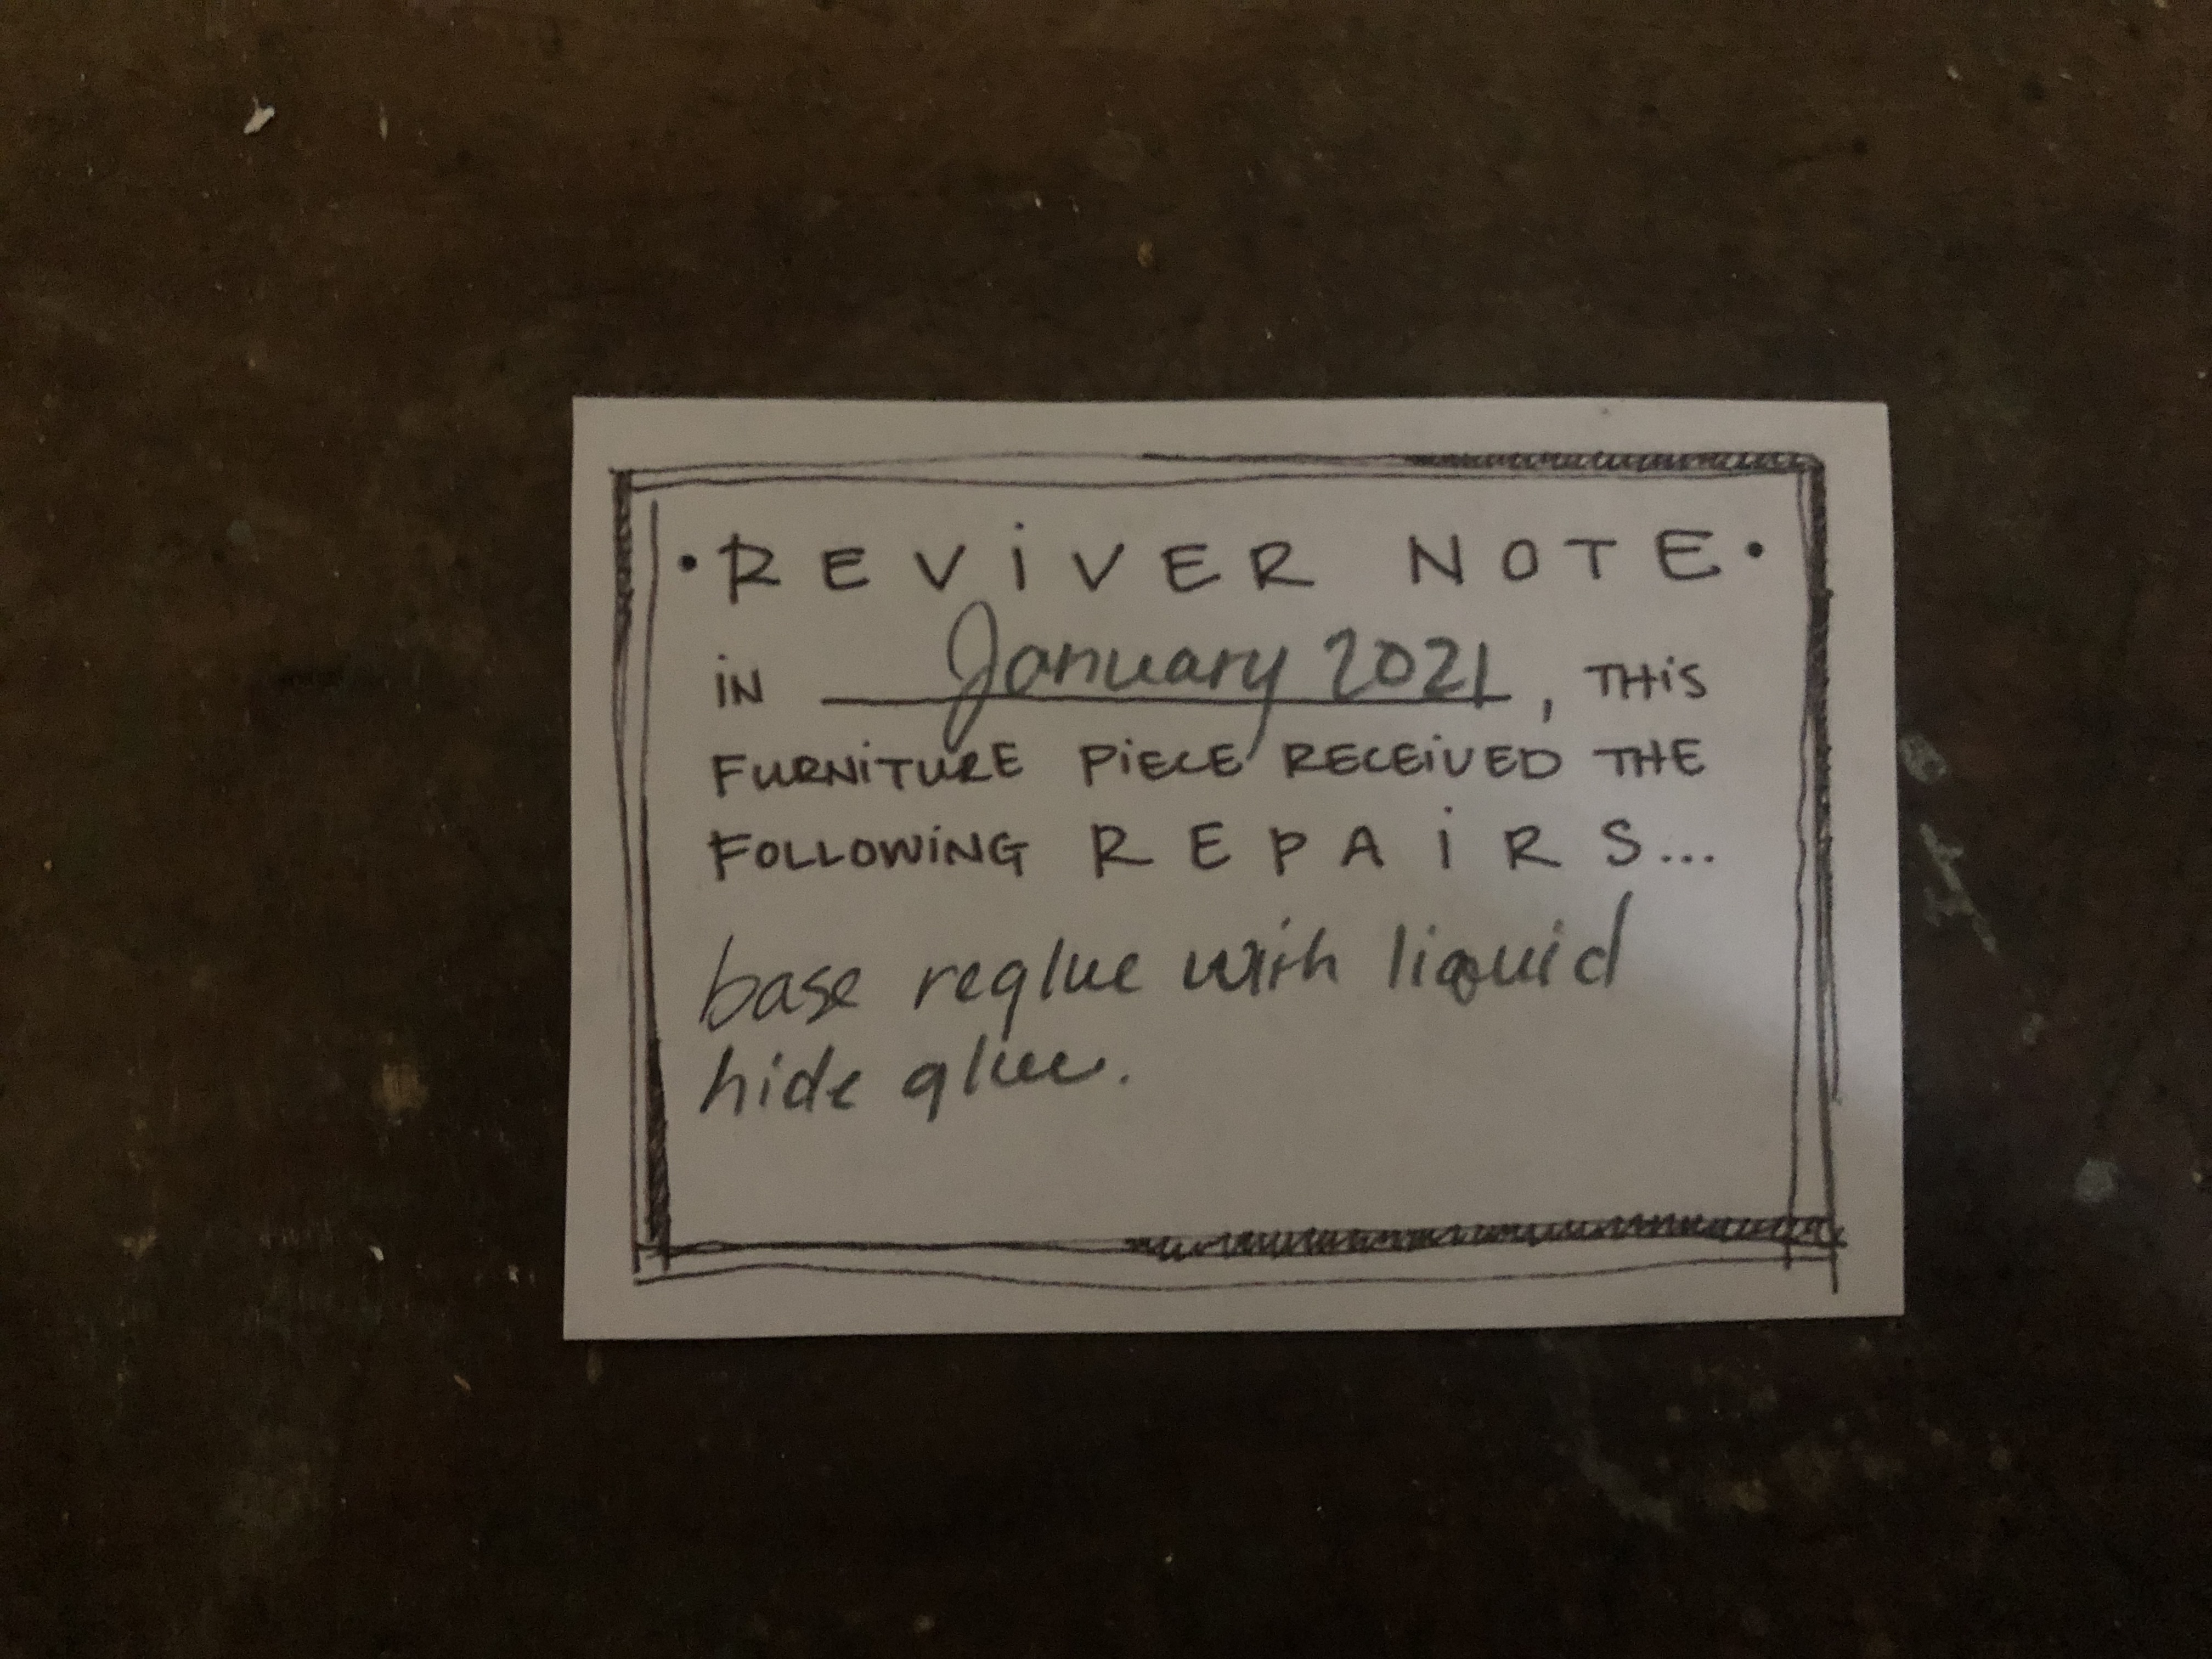 • REViVER NOTE •
iN January 2021, THiS
FURNiTURE PiECE RECEiVED THE
FOLLOWiNG REPAiRS...
base reglue with liquid
hide glue.